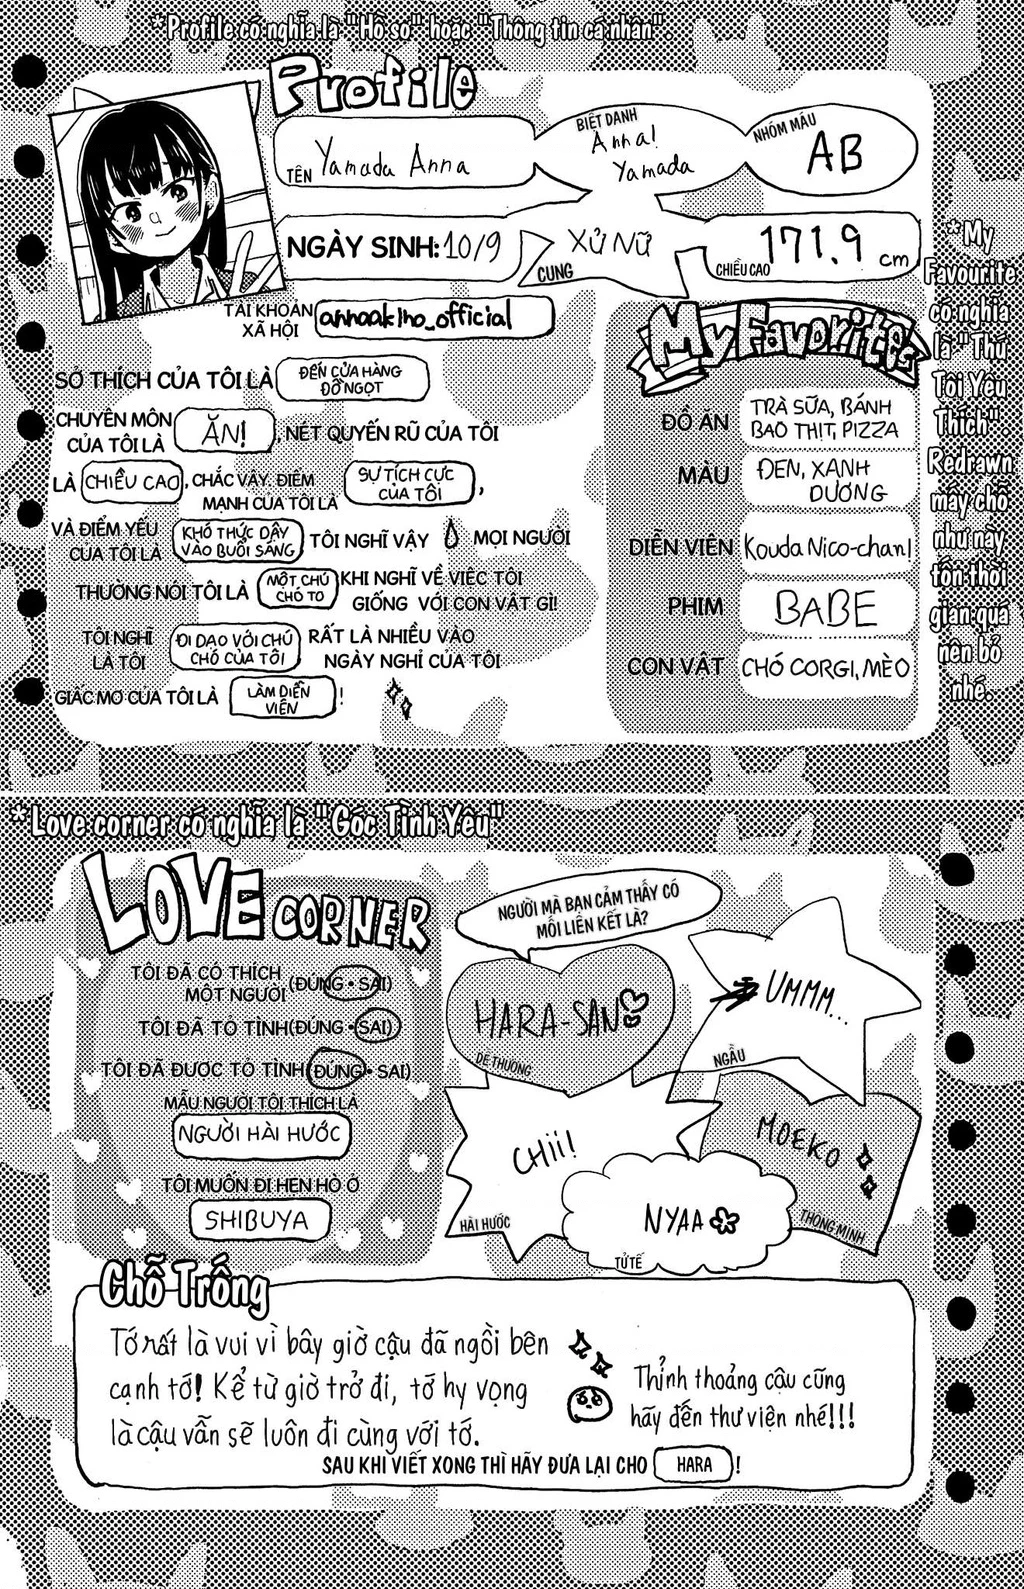 *Profile có nghĩa là "Hồ sơ" hoặc "Thông tin cá nhân".
Profile
TÊN Yamada Anna
BIỆT DANH
Anna!
Yamada
NHÓM MÁU
AB
NGÀY SINH: 10/9
XỬ NỮ
CUNG
171.9 cm
CHIỀU CAO
TÀI KHOẢN
XÃ HỘI
annaakino_official
SỞ THÍCH CỦA TÔI LÀ ĐẾN CỬA HÀNG
ĐỒ NGỌT
CHUYÊN MÔN
CỦA TÔI LÀ ĂN!, NÉT QUYẾN RŨ CỦA TÔI
LÀ CHIỀU CAO, CHẮC VẬY. ĐIỂM
MẠNH CỦA TÔI LÀ SỰ TÍCH CỰC
CỦA TÔI,
VÀ ĐIỂM YẾU
CỦA TÔI LÀ KHÓ THỨC DẬY
VÀO BUỔI SÁNG TÔI NGHĨ VẬY MỌI NGƯỜI
THƯỜNG NÓI TÔI LÀ MỘT CHÚ
CHÓ TO KHI NGHĨ VỀ VIỆC TÔI
GIỐNG VỚI CON VẬT GÌ!
TÔI NGHĨ
LÀ TÔI ĐI DẠO VỚI CHÚ
CHÓ CỦA TÔI RẤT LÀ NHIỀU VÀO
NGÀY NGHỈ CỦA TÔI
GIẤC MƠ CỦA TÔI LÀ LÀM DIỄN
VIÊN!
My Favorites
ĐỒ ĂN TRÀ SỮA, BÁNH
BAO THỊT, PIZZA
MÀU ĐEN, XANH
DƯƠNG
DIỄN VIÊN Kouda Nico-chan!
PHIM BABE
CON VẬT CHÓ CORGI, MÈO
*My
Favourite
có nghĩa
là "Thứ
Tôi Yêu
Thích".
Redrawn
mấy chỗ
như này
tốn thời
gian quá
nên bỏ
nhé.
*Love corner có nghĩa là "Góc Tình Yêu"
LOVE CORNER
TÔI ĐÃ CÓ THÍCH
MỘT NGƯỜI (ĐÚNG • SAI)
TÔI ĐÃ TỎ TÌNH (ĐÚNG • SAI)
TÔI ĐÃ ĐƯỢC TỎ TÌNH (ĐÚNG • SAI)
MẪU NGƯỜI TÔI THÍCH LÀ
NGƯỜI HÀI HƯỚC
TÔI MUỐN ĐI HẸN HÒ Ở
SHIBUYA
NGƯỜI MÀ BẠN CẢM THẤY CÓ
MỐI LIÊN KẾT LÀ?
HARA-SAN
DỄ THƯƠNG
UMMM...
NGẦU
CHii!
HÀI HƯỚC
MOEKO
THÔNG MINH
NYAA
TỬ TẾ
Chỗ Trống
Tớ rất là vui vì bây giờ cậu đã ngồi bên
cạnh tớ! Kể từ giờ trở đi, tớ hy vọng
là cậu vẫn sẽ luôn đi cùng với tớ.
Thỉnh thoảng cậu cũng
hãy đến thư viện nhé!!!
SAU KHI VIẾT XONG THÌ HÃY ĐƯA LẠI CHO HARA!